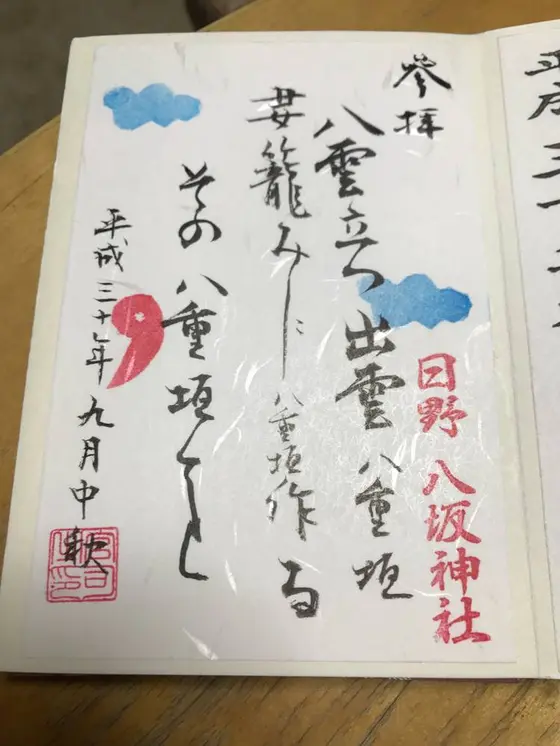 平成三十
參拝
日野 八坂神社
八雲立つ 出雲八重垣
妻籠みに 八重垣作る
その八重垣を
平成三十年 九月中秋